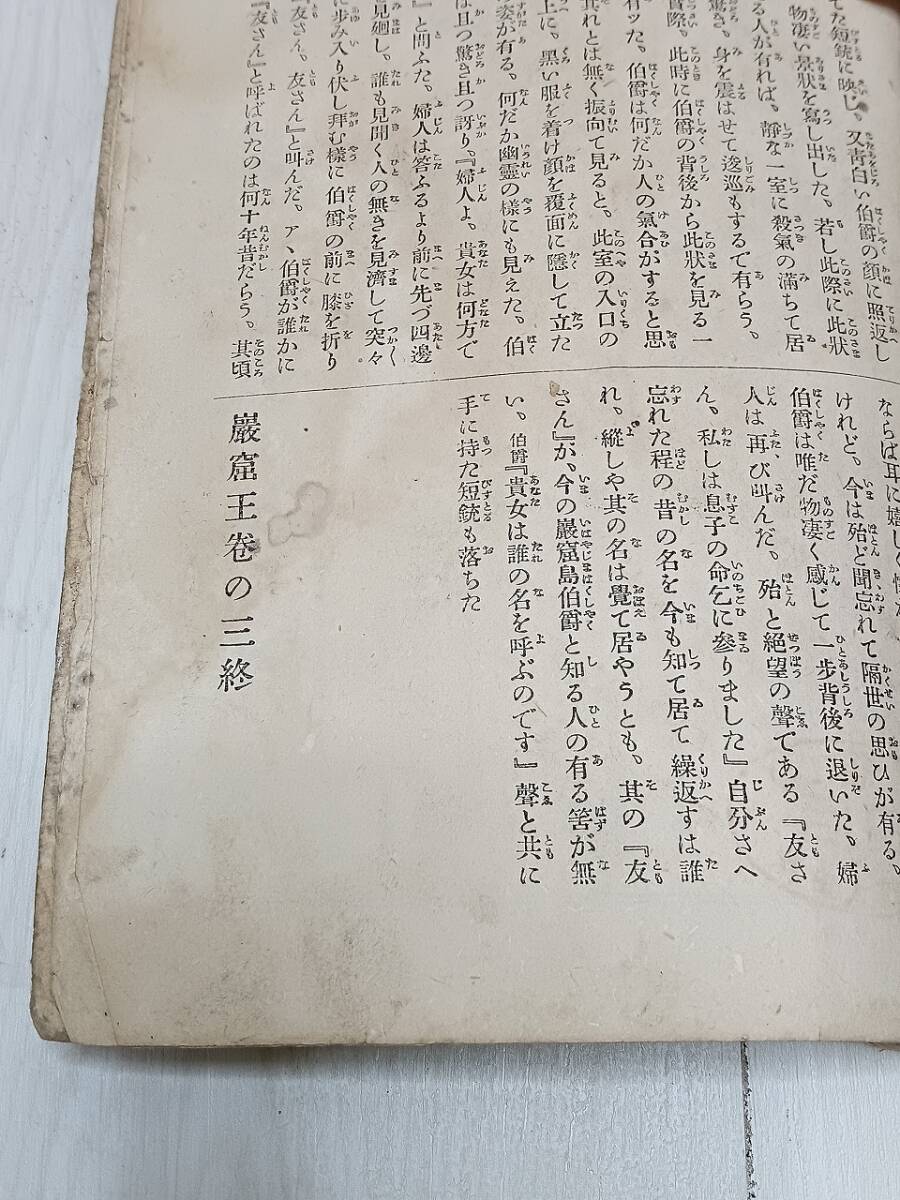 てた短銃に映じ、又青白い伯爵の顔に照返し
物凄い景狀を寫し出した。若し此際に此狀
る人が有れば。靜な一室に殺氣の滿ちて居
驚き。身を震はせて逡巡もするで有らう。
實際。此時に伯爵の背後から此狀を見る一
有ッた。伯爵は何だか人の氣合がすると思
其れとは無く振向て見ると。此室の入口の
上に。黑い服を着け顔を覆面に隱して立た
姿が有る。何だか幽靈の樣にも見えた。伯
は且つ驚き且つ訝り。『婦人よ。貴女は何方で
』と問ふた。婦人は答ふるより前に先づ四邊
見廻し。誰も見聞く人の無きを見濟して突々
に歩み入り伏し拜む樣に伯爵の前に膝を折り
『友さん。友さん』と叫んだ。アヽ伯爵が誰かに
『友さん』と呼ばれたのは何十年昔だらう。其頃
ならば耳に嬉しく
けれど。今は殆ど聞忘れて隔世の思ひが有る。
伯爵は唯だ物凄く感じて一步背後に退いた。婦
人は再び叫んだ。殆と絕望の聲である『友さ
ん。私しは息子の命乞に參りました』自分さへ
忘れた程の昔の名を今も知て居て繰返すは誰
れ。縱しや其の名は覺て居やうとも、其の『友
さん』が、今の巖窟島伯爵と知る人の有る筈が無
い。伯爵『貴女は誰の名を呼ぶのです』聲と共に
手に持た短銃も落ちた
巖窟王卷の三終